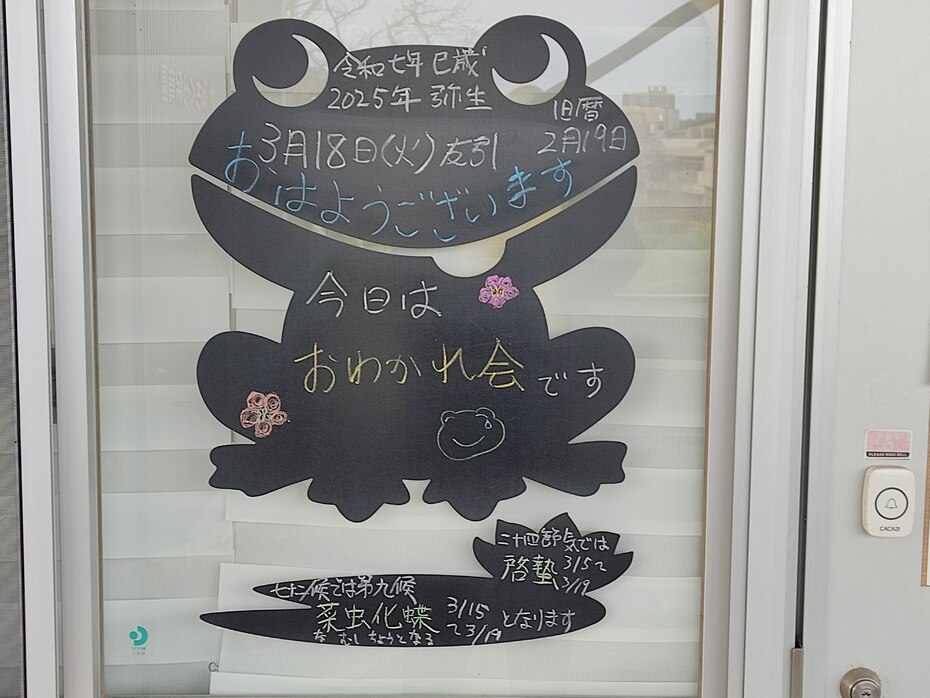 令和七年 巳歳
2025年 弥生
旧暦
2月19日
3月18日(火)友引
おはようございます
今日は
おわかれ会です
二十四節気では
啓蟄 3/5〜
3/19
七十二候では第九候
菜虫化蝶 3/15
〜3/19 となります
なむしちょうとなる
PLEASE RING BELL
CACAZI